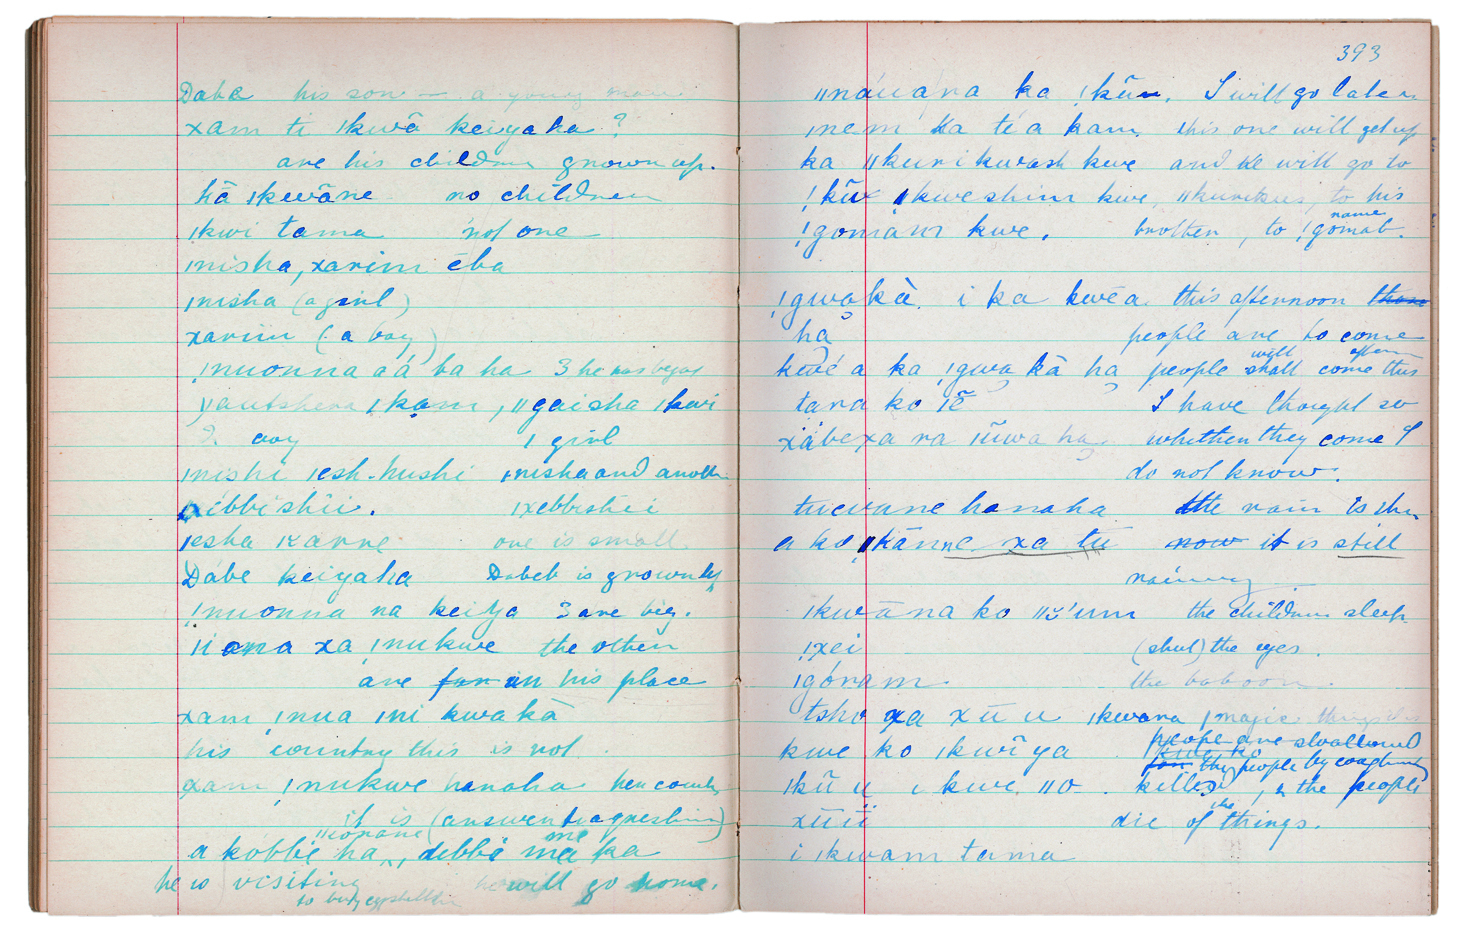 Dabe his son — a young man
xam ti ǀkwā keiyaha ?
are his children grown up.
hā ǀkwāne no children
ǀkwi tama not one
ǀnisha, xarim éba
ǀnisha (a girl)
xarim (a boy)
ǃnuonna aá ba ha 3 he has begot
ǀkam, ǁgaisha ǀkwi
2 boy 1 girl
ǀnishi ǀesh-hushi ǀnisha and another
xébbishii. ǀxebbishii
ǀesha ǀkarre one is small
Dábe keiyaha Dabeb is grown up
ǃnuonna na keiya 3 are big.
xa ǀnukwe the other
are in his place
xam ǀnua ǀni kwakà
his country this is not.
xam ǀnukwe hanaha her country
it is (answer to a question)
ǁkorane me
a kobbe ha, debbe ma ka
he is visiting he will go home.
to buy eggshells
393
ǁnáuána ka ǃkũn. I will go later
ǀnem ka téa kam, this one will get up
ka ǁkurikwash kwe and he will go to
ǃkũx ǀkweshim kwe, ǁkurikus, to his
name
ǃgomám kwe. brother, to ǃgomab.
ǃgwakà. i ka kwéa this afternoon
ha people are to come
will afternoon
kwé a ka ǃgwa kà ha people shall come this
tana ko ĩẽ I have thought so
xábexa na ĩũwa ha whether they come I
do not know.
tuewane hanaha the rain is there
a ko ǁkānne xa tū now it is still
raining
ǀkwāna ko ǁʼum the children sleep
ǃxei (shut) the eyes.
ǀgóram the baboon.
tshu xa xū u ǀkwana magic things
people are swallowed
kwe ko ǀkwīya
the people by coughing
ǀkũ u i kwe ǁo . killed, the people
the
xūū die of things.
i ǀkwam tama